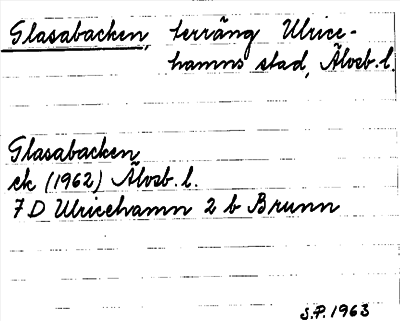 Glasabacken, terräng Ulrice-
hamns stad, Älvsb. l.
Glasabacken
ek (1962) Älvsb. l.
7 D Ulricehamn 2 b Brunn
S.P. 1963